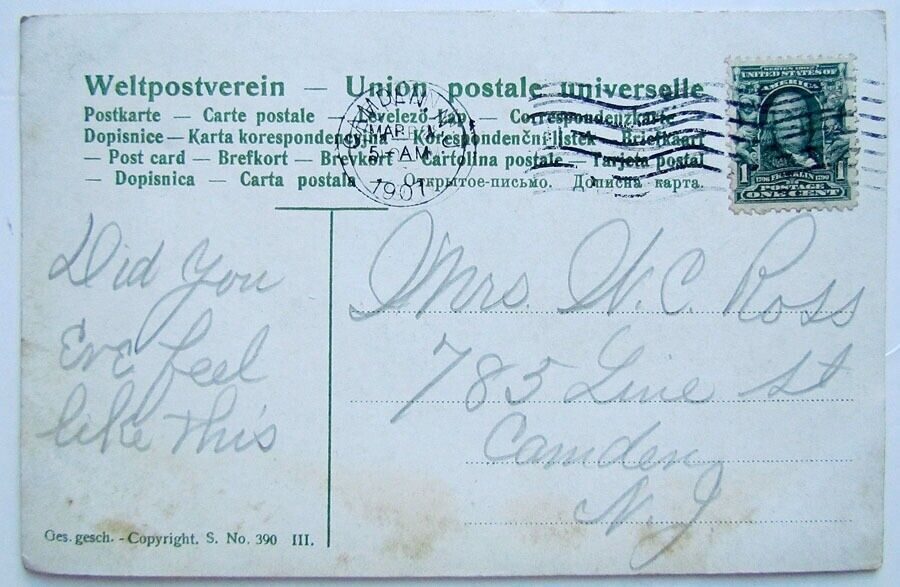 Weltpostverein — Union postale universelle
Postkarte — Carte postale — Levelező-Lap — Correspondenzkarte
Dopisnice — Karta korespondencyjna — Korespondenční listek — Briefkaart
— Post card — Brefkort — Brevkort — Cartolina postale — Tarjeta postal
— Dopisnica — Carta postala — Открытое-письмо. Дописна карта.
CAMDEN N.J.
MAR
AM
1907
SERIES 1902
UNITED STATES OF
AMERICA
1 1706 FRANKLIN 1790 1
POSTAGE
ONE CENT
Did You
Eve feel
like This
Mrs. W. C. Ross
785 Line St
Camden
N. J.
Ges. gesch. - Copyright. S. No. 390 III.